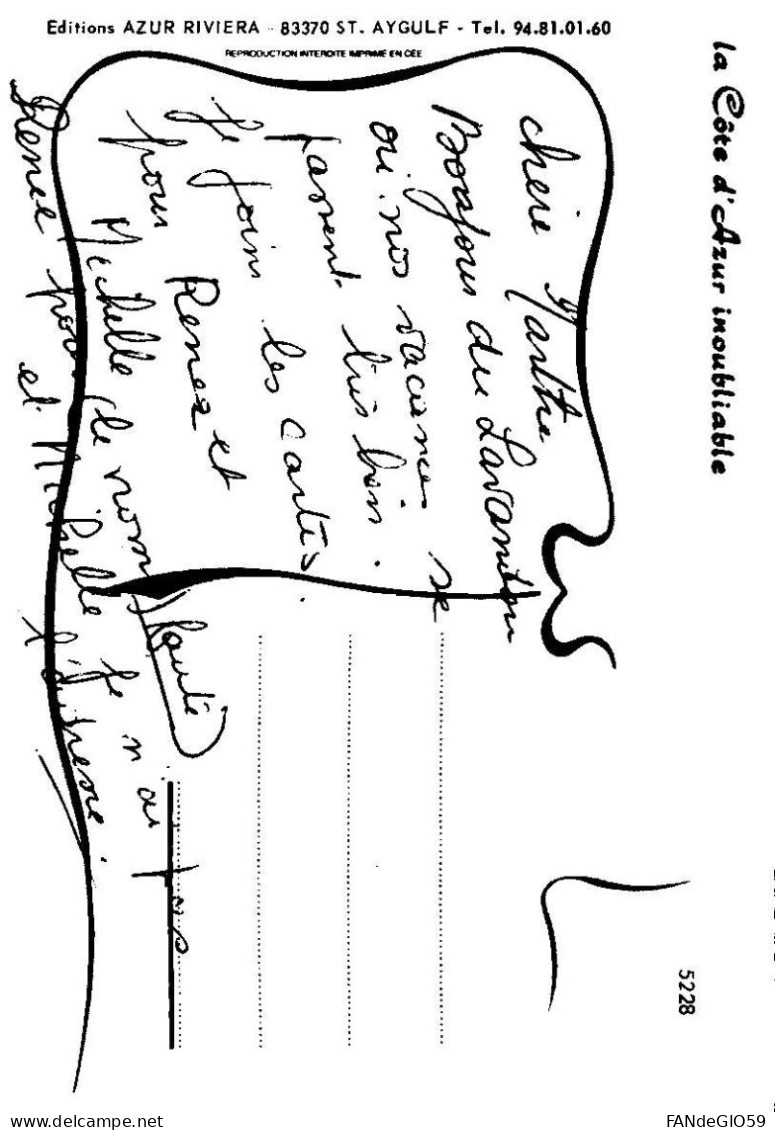 la Côte d'Azur inoubliable
Editions AZUR RIVIERA - 83370 ST. AYGULF - Tel. 94.81.01.60
REPRODUCTION INTERDITE IMPRIMÉ EN CEE
5228
chère Marthe
Bonjour du Lavandou
où nos vacances se
passent très bien.
Je joins les cartes
pour Renée et
Michelle de nom
Renée pour
et Michelle je n'ai pas
l'adresse.
delcampe.net
FANdeGIO59